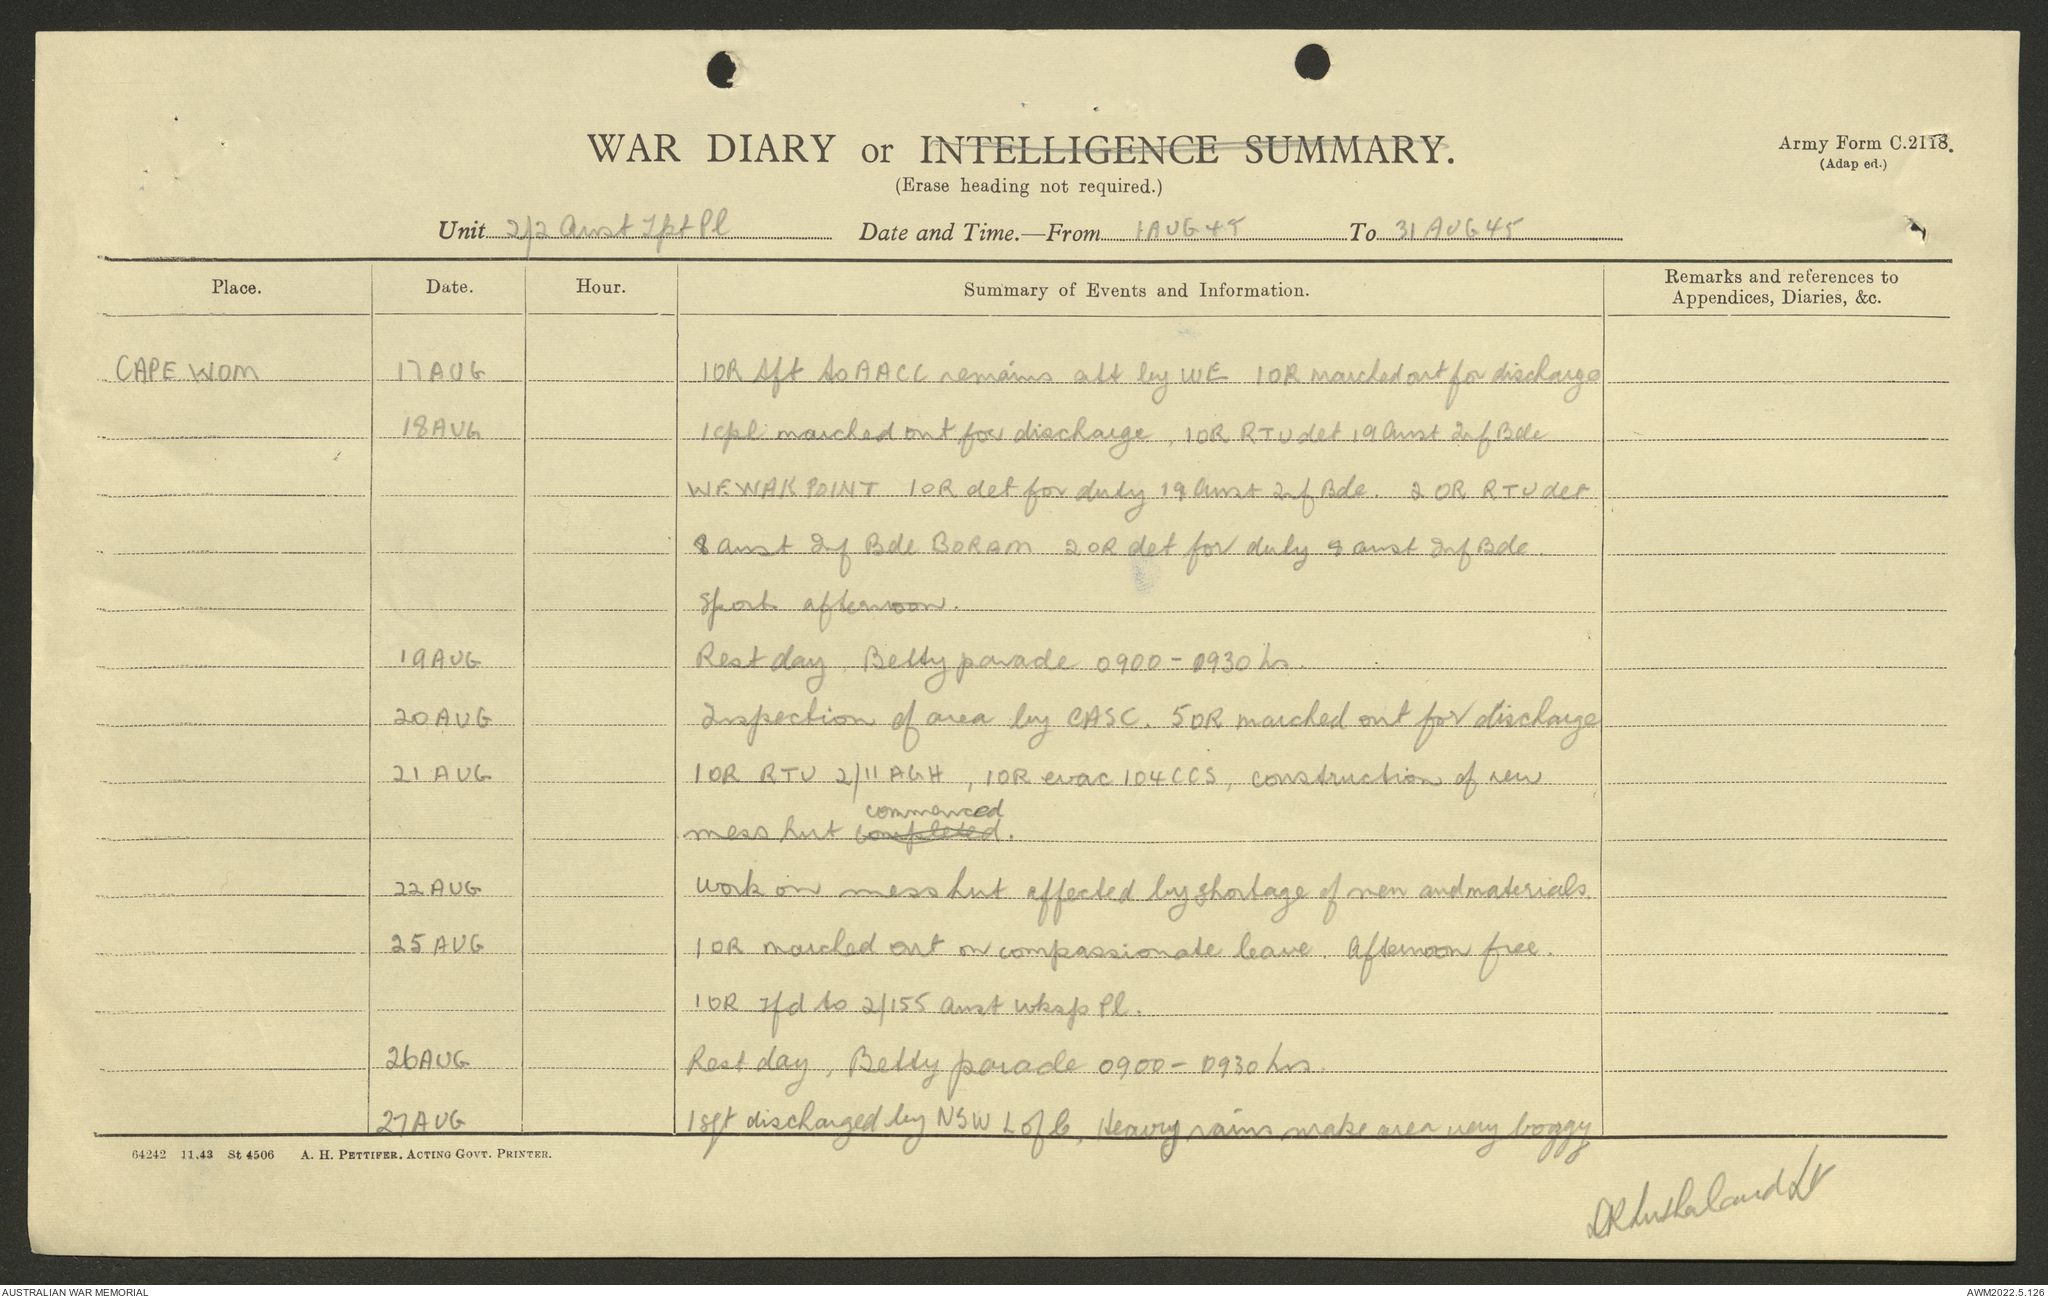 WAR DIARY or INTELLIGENCE SUMMARY.
Army Form C.2118.
(Adap ed.)
(Erase heading not required.)
Unit 2/2 Aust Tpt Pl Date and Time.—From 1 AUG 45 To 31 AUG 45
Place. Date. Hour. Summary of Events and Information. Remarks and references to Appendices, Diaries, &c.
CAPE WOM 17 AUG 1 OR tft to AACC remains att by WE 1 OR marched out for discharge
18 AUG 1 cpl marched out for discharge, 1 OR RTU det 19 Aust Inf Bde
WEWAK POINT 1 OR det for duty 19 Aust Inf Bde. 2 OR RTU det
8 Aust Inf Bde BORAM 2 OR det for duly 8 Aust Inf Bde.
Sports afternoon.
19 AUG Rest day. Betty parade 0900 - 0930 hrs.
20 AUG Inspection of area by CASC. 5 OR marched out for discharge
21 AUG 1 OR RTU 2/11 AGH, 1 OR evac 104 CCS, construction of new
commenced
mess hut completed.
22 AUG Work on mess hut affected by shortage of men and materials.
25 AUG 1 OR marched out on compassionate leave. Afternoon free.
1 OR Tfd to 2/155 Aust Wksp Pl.
26 AUG Rest day, Betty parade 0900 - 0930 hrs.
27 AUG 1 Sgt discharged by NSW L of C, Heavy rains make area very boggy
64242 11.43 St 4506 A. H. PETTIFER, ACTING GOVT. PRINTER.
DR Sutherland Lt
AUSTRALIAN WAR MEMORIAL
AWM2022.5.126